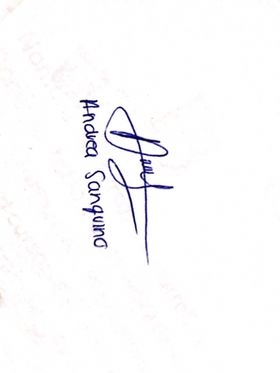 Andrea Sanguino